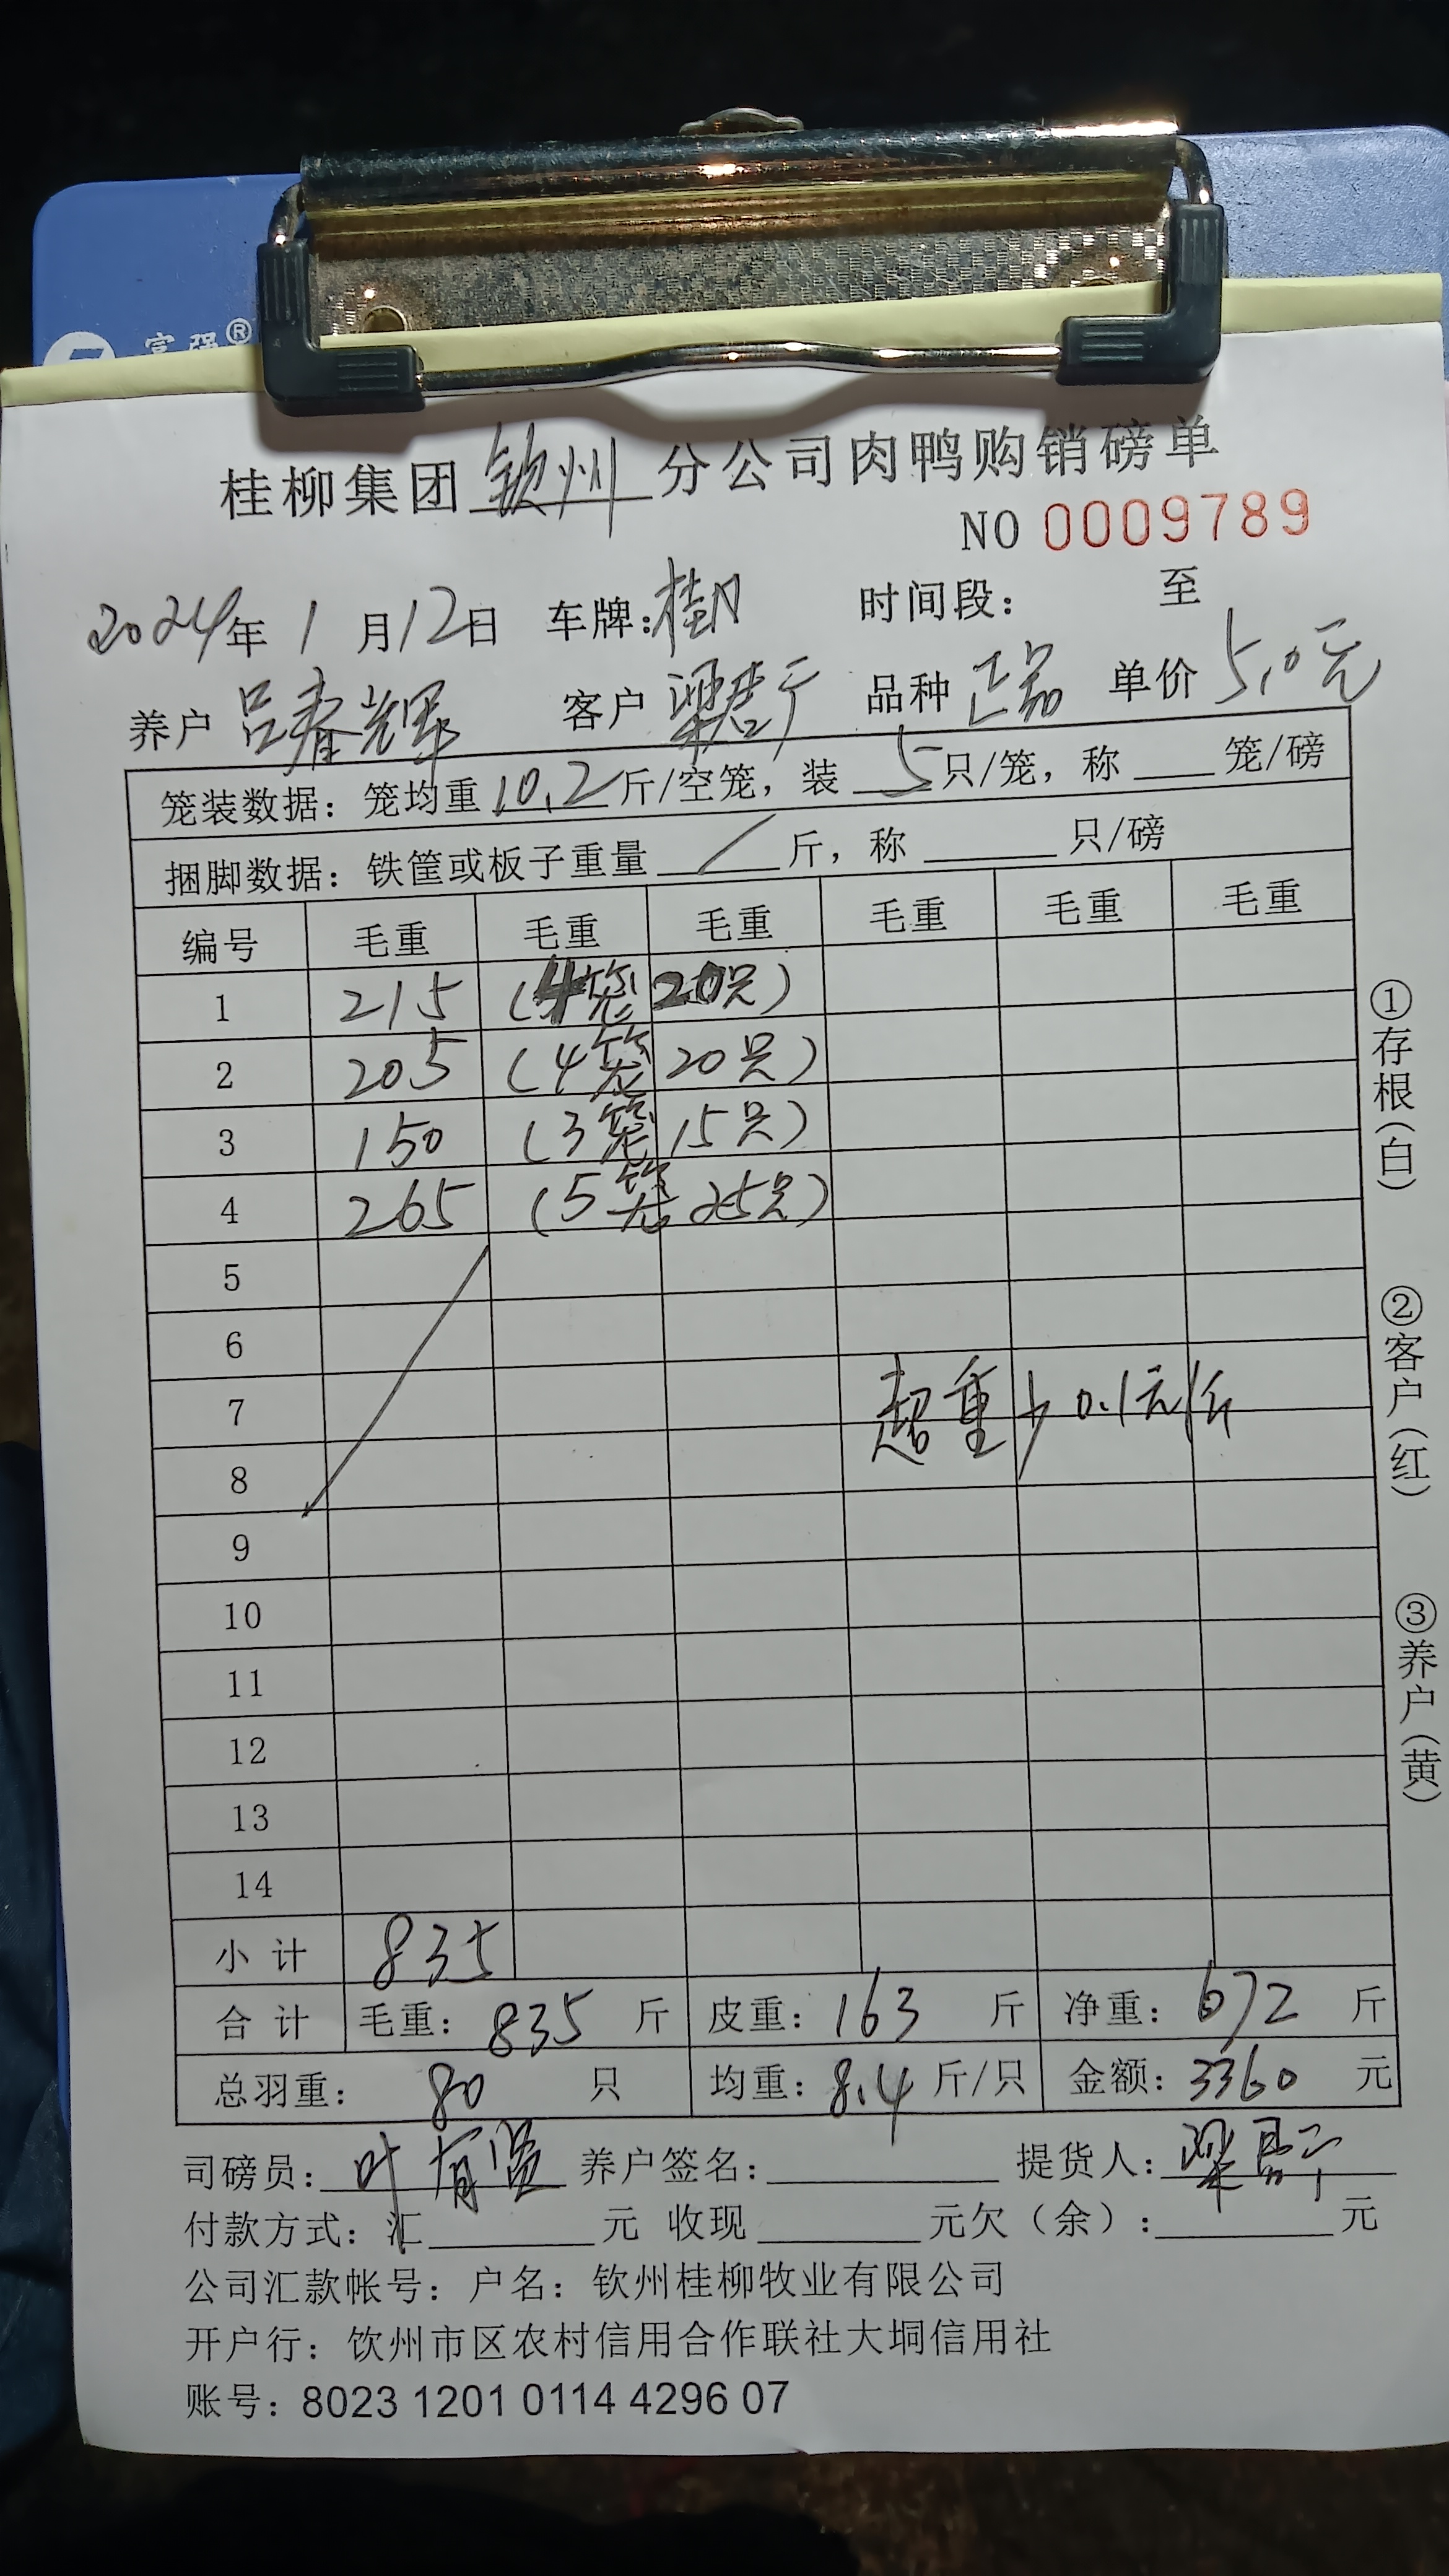 富强®
桂柳集团钦州分公司肉鸭购销磅单
NO 0009789
2024年1月12日 车牌: 时间段: 至
养户 吕春辉 客户 品种 正品 单价 5.0元
笼装数据: 笼均重10.2斤/空笼, 装5只/笼, 称 笼/磅
捆脚数据: 铁筐或板子重量 / 斤, 称 只/磅
编号 毛重 毛重 毛重 毛重 毛重 毛重
1 215 (4笼 20只)
2 205 (4笼 20只)
3 150 (3笼 15只)
4 265 (5笼 25只)
5
6
7 超重少0.1元/斤
8
9
10
11
12
13
14
小计 835
合计 毛重: 835 斤 皮重: 163 斤 净重: 672 斤
总羽重: 80 只 均重: 8.4 斤/只 金额: 3360 元
司磅员: 叶 养户签名: 提货人:
付款方式: 汇 元 收现 元欠(余): 元
公司汇款帐号: 户名: 钦州桂柳牧业有限公司
开户行: 钦州市区农村信用合作联社大垌信用社
账号: 8023 1201 0114 4296 07
①存根(白)
②客户(红)
③养户(黄)